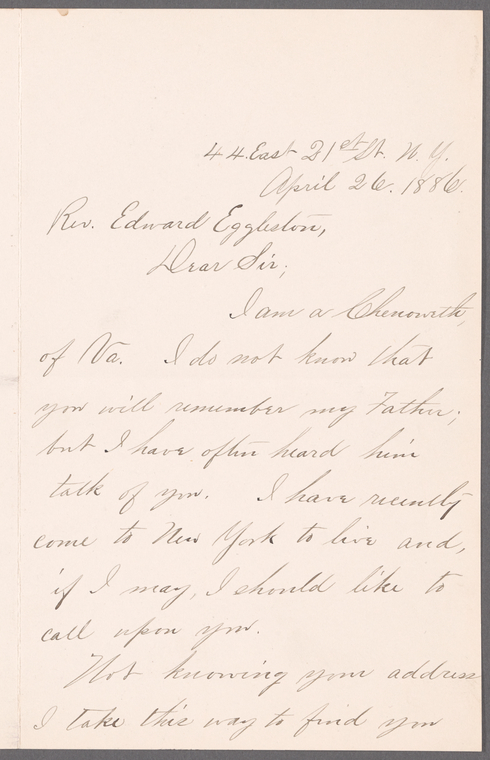 44. East 21st St. N. Y.
April 26. 1886.
Rev. Edward Eggleston,
Dear Sir;
I am a Chenowith,
of Va. I do not know that
you will remember my Father;
but I have often heard him
talk of you. I have recently
come to New York to live and,
if I may, I should like to
call upon you.
Not knowing your address
I take this way to find you